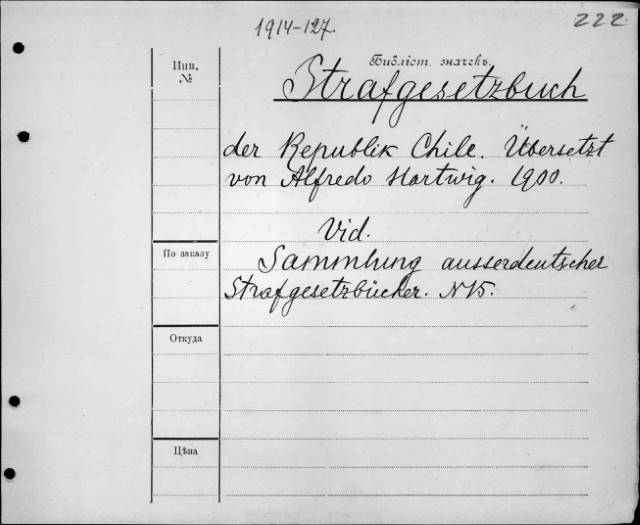 1914-127.
222.
Инв.
№
Библіот. значекъ.
Strafgesetzbuch
der Republik Chile. Übersetzt
von Alfredo Hartwig. 1900.
Vid.
По заказу
Sammlung ausserdeutscher
Strafgesetzbücher. N 15.
Откуда
Цѣна